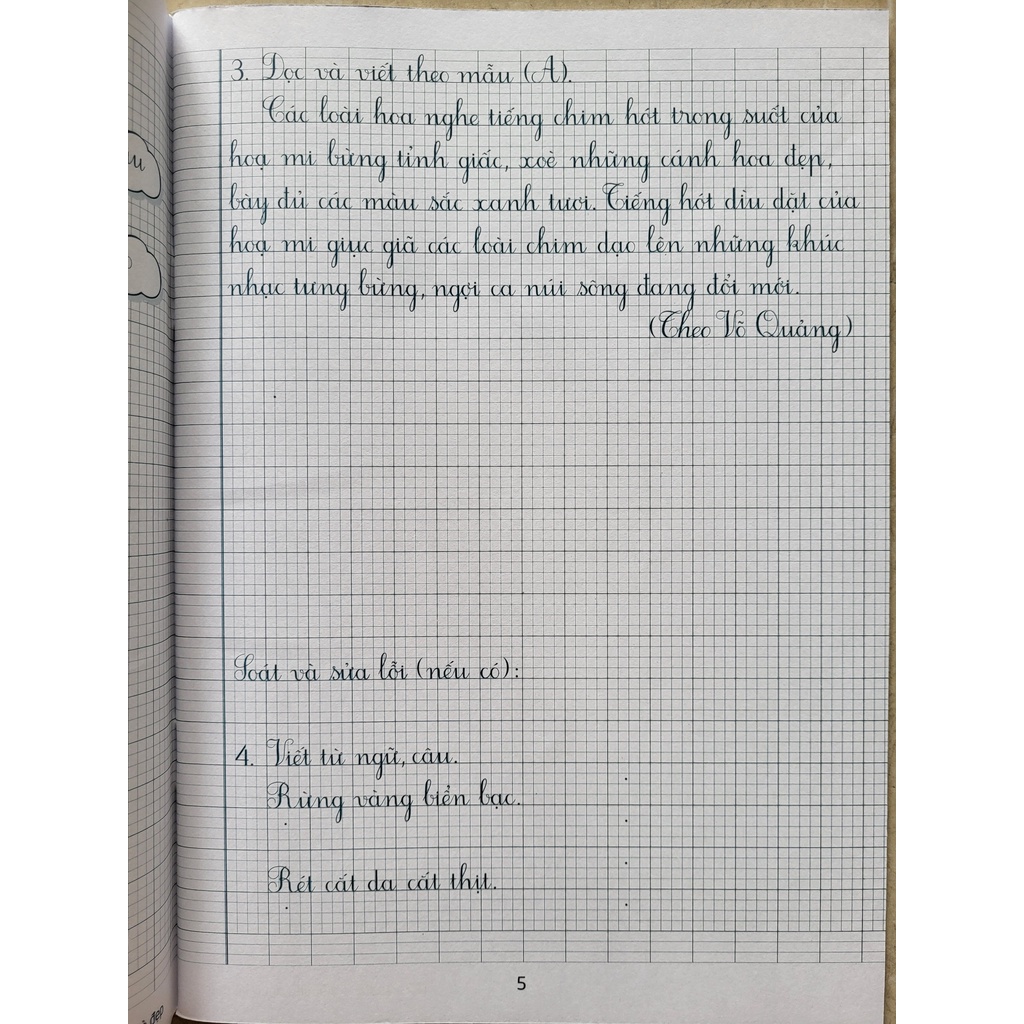 3. Đọc và viết theo mẫu (A).
Các loài hoa nghe tiếng chim hót trong suốt của
hoạ mi bừng tỉnh giấc, xoè những cánh hoa đẹp,
bày đủ các màu sắc xanh tươi. Tiếng hót dìu dặt của
hoạ mi giục giã các loài chim dạo lên những khúc
nhạc tưng bừng, ngợi ca núi sông đang đổi mới.
(Theo Võ Quảng)
Soát và sửa lỗi (nếu có):
4. Viết từ ngữ, câu.
Rừng vàng biển bạc.
Rét cắt da cắt thịt.
5
đẹp